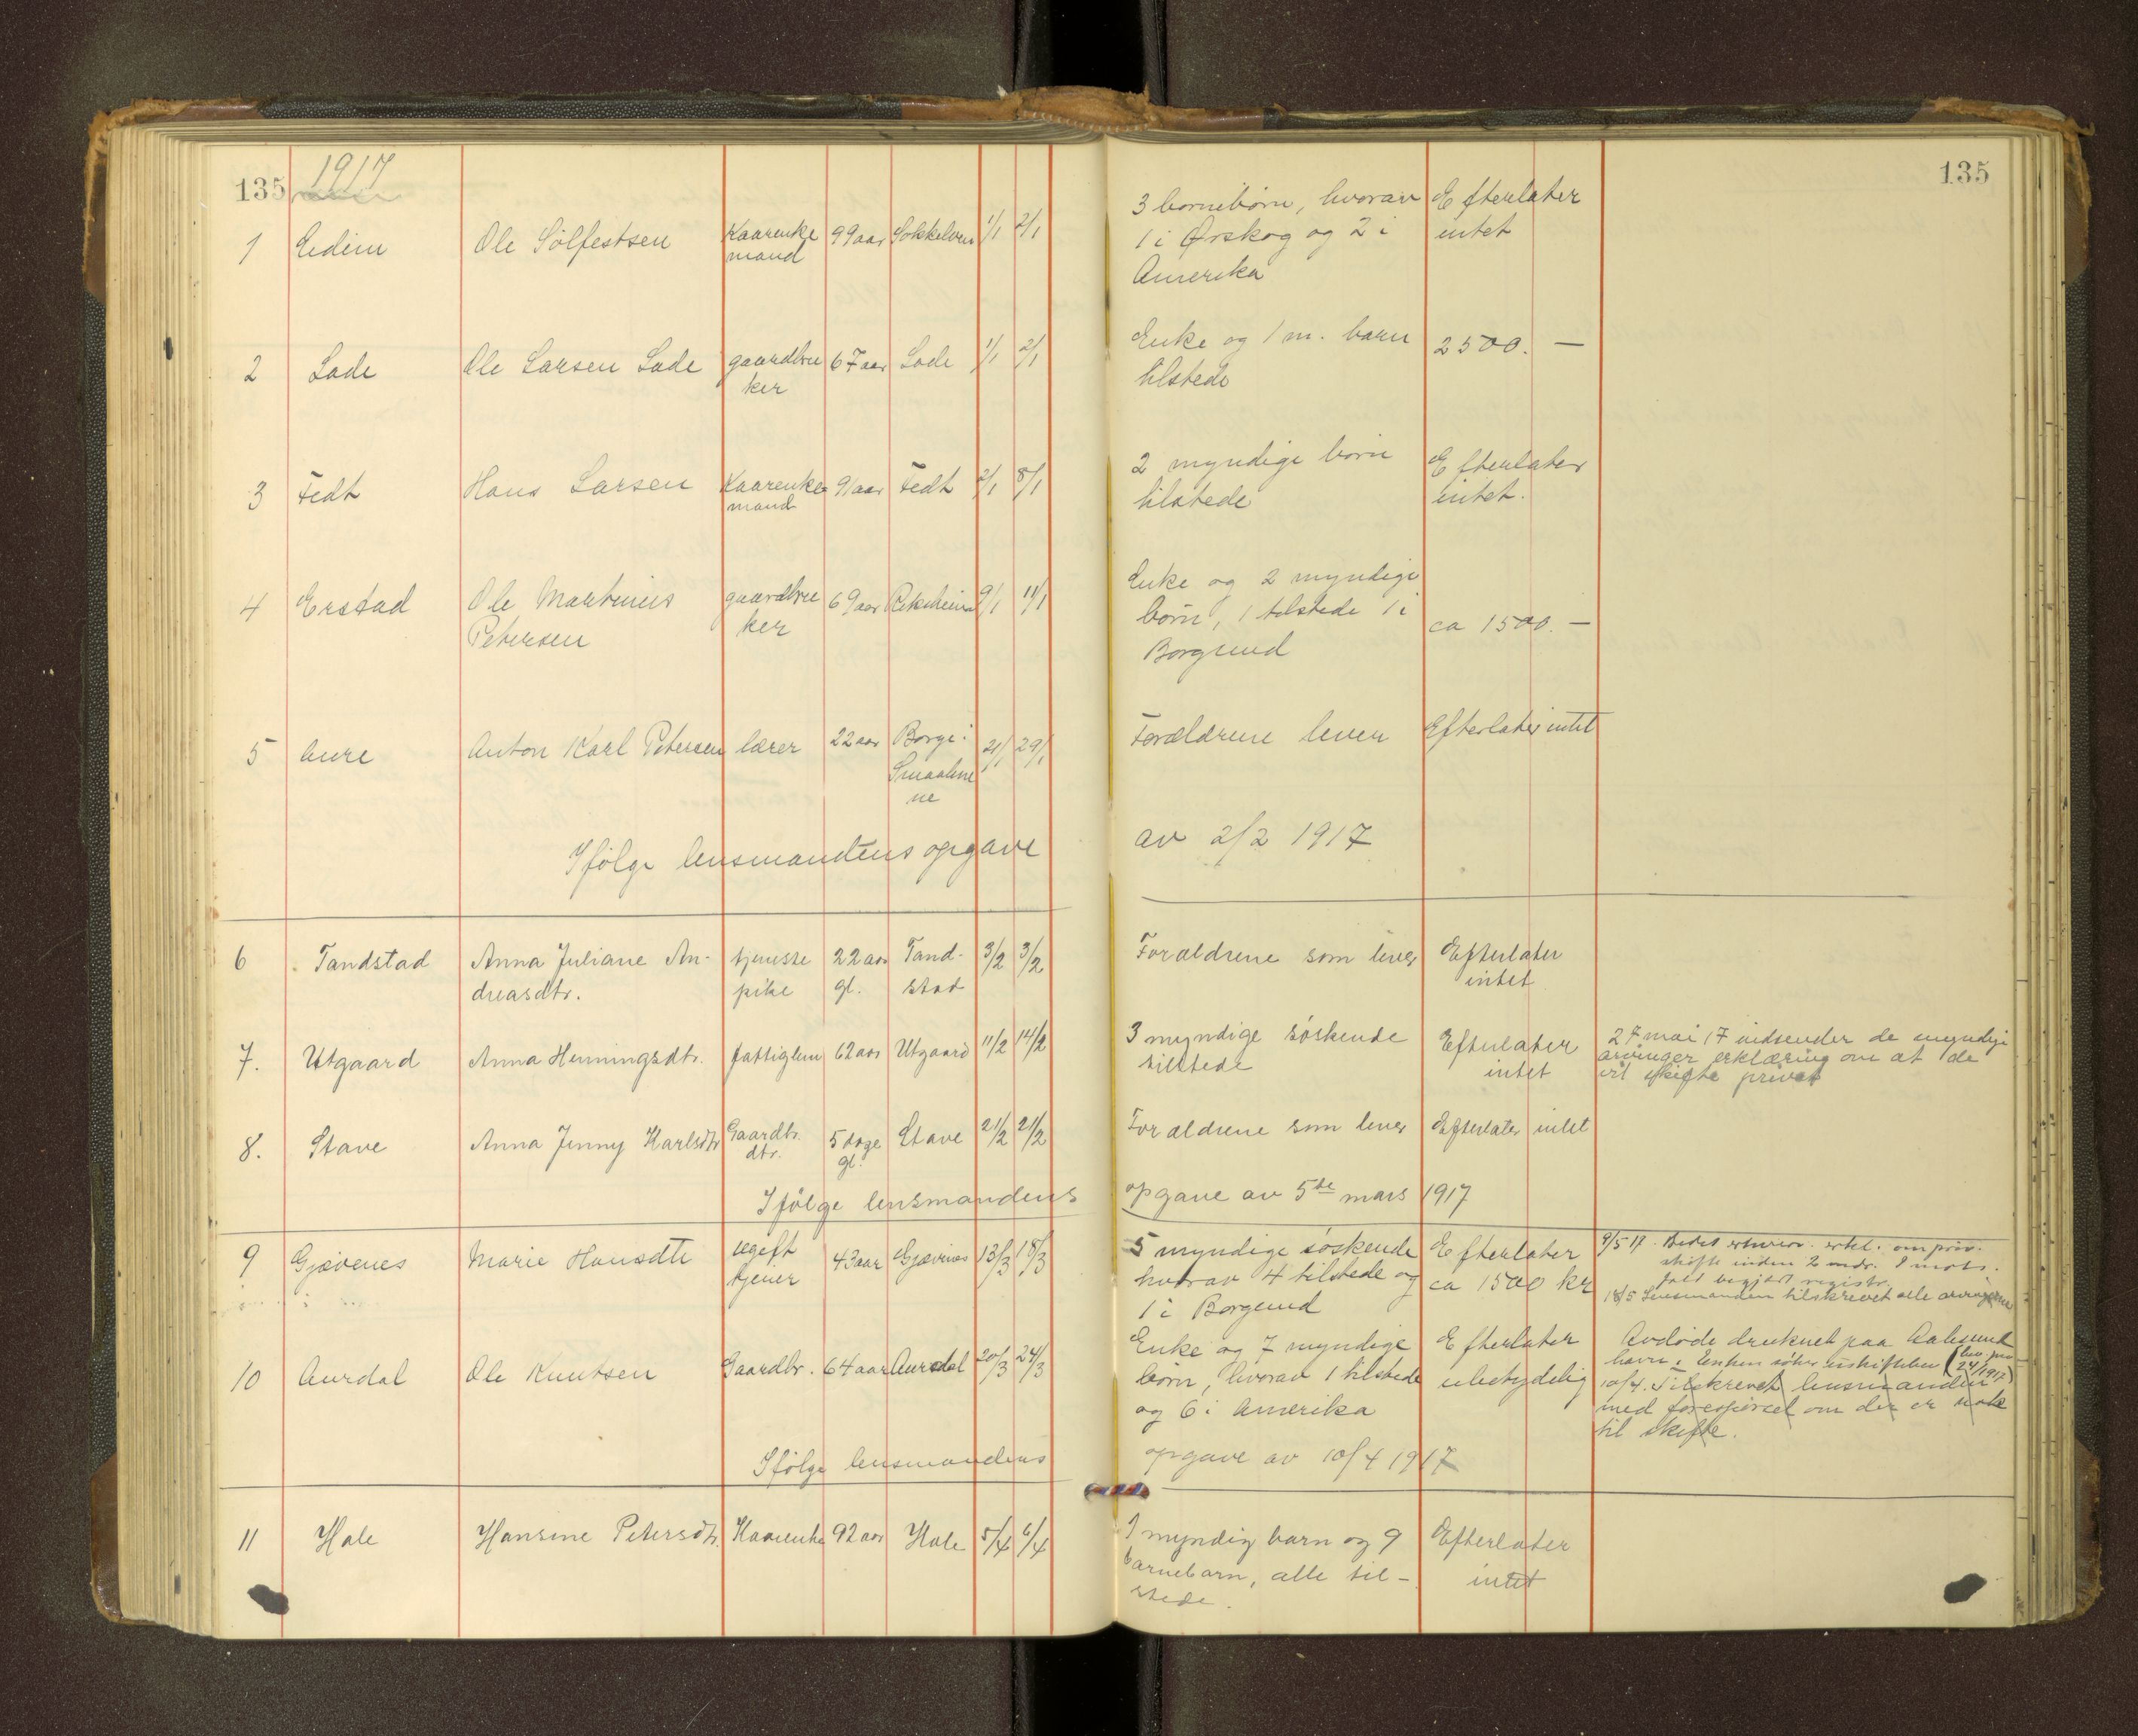 135 1917
135
1 Eidem Ole Sölfestsen Kaarenke 99 aar Sokkelven 1/1 2/1
mand
3 barnebörn, hvorav Efterlater
1 i Ørskog og 2 i intet
Amerika
2 Lade Ole Larsen Lade gaardbru 67 aar Lade 1/1 2/1
ker
Enke og 1 m. barn 2500. —
tilstede
3 Fedt Hans Larsen Kaarenke 91 aar Fedt 2/1 8/1
mand
2 myndige börn Efterlater
tilstede intet.
4 Erstad Ole Martinius gaardbru 69 aar Rekeheim 9/1 11/1
Petersen ker
Enke og 2 myndige
börn, 1 tilstede 1 i ca 1500. —
Borgund
5 Aure Anton Karl Petersen lærer 22 aar Borge i 21/1 29/1
Smaalene
ne
Forældrene lever Efterlater intet
Ifölge lensmandens opgave av 2/2 1917
6 Tandstad Anna Juliane An- tjeneste 22 aar Tand- 3/2 3/2
dreasdtr. pike gl. stad
Forældrene som lever Efterlater
intet
7. Utgaard Anna Henningsdtr. fattiglem 62 aar Utgaard 11/2 14/2
3 myndige söskende Efterlater
tilstede intet
27 mai 17 indsender de myndige
arvinger erklæring om at de
vil skifte privat
8. Stave Anna Jenny Karlsdtr Gaardbr. 5 dage Stave 21/2 21/2
dtr. gl.
Forældrene som lever Efterlater intet
Ifölge lensmandens opgave av 5te mars 1917
9 Gjævenes Marie Hansdtr ugift 43 aar Gjævnes 13/3 18/3
tjener
5 myndige söskende Efterlater
hvorav 4 tilstede og ca 1500 kr
1 i Borgund
9/5 17. erkl. om priv.
skifte inden 2 mdr. I mots.
fald begjært registr.
18/5 Lensmanden tilskrevet alle arvingerne
10 Aurdal Ole Knutsen Gaardbr. 64 aar Aurdal 20/3 24/3
Enke og 7 myndige Efterlater
börn, hvorav 1 tilstede ubetydelig
og 6 i Amerika
Avdöde druknet paa Aalesund
havn. Enken söker uskiftebev (24/1917)
10/4. Tilskrevet lensmanden
med forespörsel om der er nok
til skifte.
Ifölge lensmandens opgave av 10/4 1917
11 Hole Hansine Petersdtr. Kaarenke 92 aar Hole 5/4 6/4
1 myndig barn og 9 Efterlater
barnebarn, alle til- intet
stede.